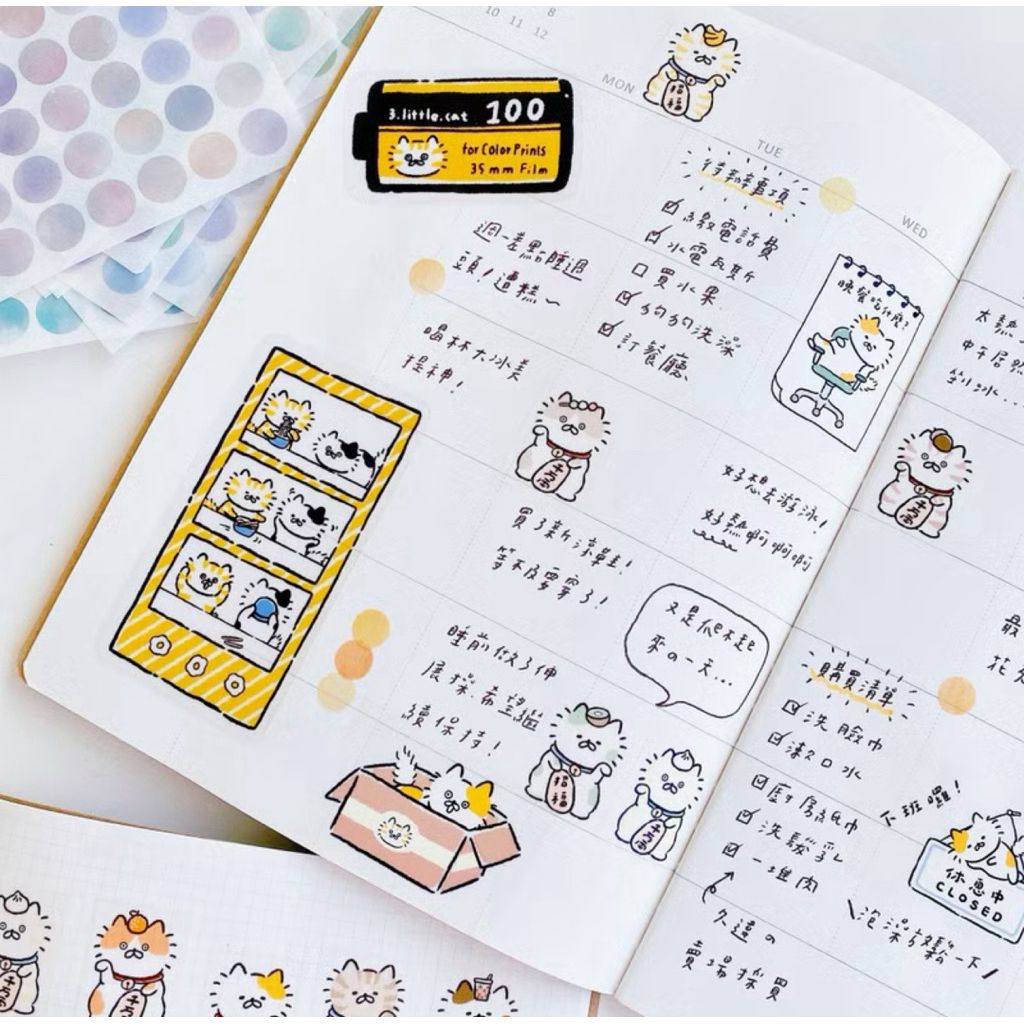 8
10 11 12
MON
TUE
WED
招福
3.little.cat 100
for Color Prints
35 mm Film
待辦事項
☑ 繳電話費
☑ 水電瓦斯
□ 買水果
☑ 狗狗洗澡
☑ 訂餐廳
週一差點睡過
頭!遭糕~
喝杯大冰美
提神!
晚餐吃什麼?
太熱
中午居然
剉冰...
千万両
千万両
好想去游泳!
好熱啊啊啊
買了新涼鞋!
等不及要穿了!
又是爬不起
來の一天...
睡前做了伸
展操希望繼
續保持!
招福
千万両
最
花
購買清單
☑ 洗臉巾
☑ 漱口水
☑ 廚房紙巾
☑ 洗髮乳
☑ 一堆肉
久違の
賣場採買
下班囉!
休息中
CLOSED
泡澡放鬆一下!
千万両
千万両